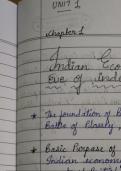 UNIT 1
Chapter 1
Indian Eco
Eve of Inde
* The foundation of B
Battle of Plassey,
* Basic Purpose of
Indian economi